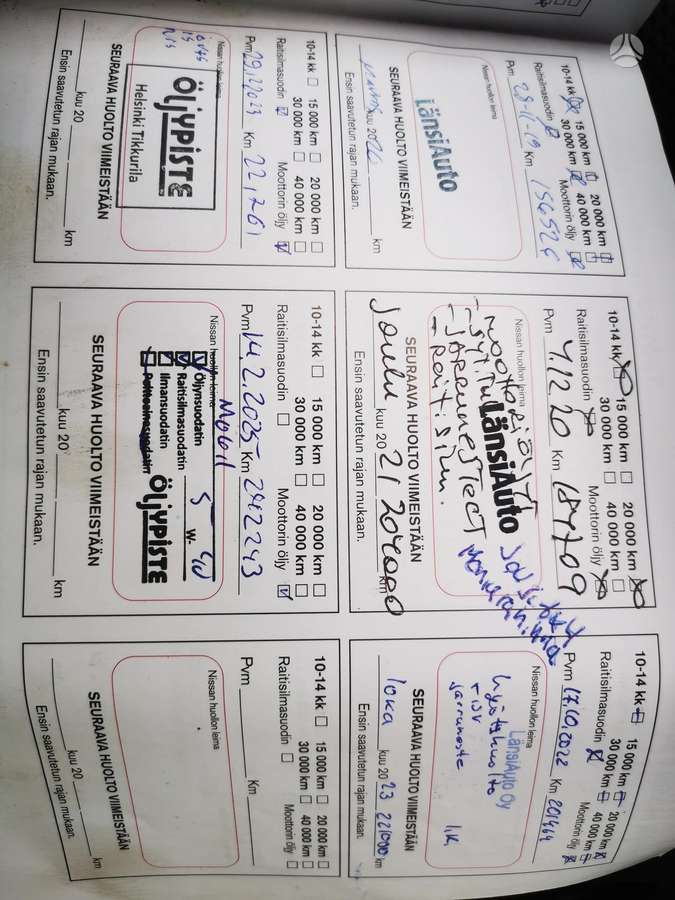 10-14 kk 15 000 km 20 000 km
30 000 km 40 000 km
Raitisilmasuodin Moottorin öljy
Pvm 28-11-19 Km 156526
Nissan huollon leima
LänsiAuto
SEURAAVA HUOLTO VIIMEISTÄÄN
kuu 20 km
Ensin saavutetun rajan mukaan.
10-14 kk 15 000 km 20 000 km
30 000 km 40 000 km
Raitisilmasuodin Moottorin öljy
Pvm 4.12.20 Km 184709
Nissan huollon leima
moottoriöljyt
LänsiAuto
- JARRUNESTEET
SEURAAVA HUOLTO VIIMEISTÄÄN
Joulu kuu 20 21 204000 km
Ensin saavutetun rajan mukaan.
10-14 kk 15 000 km 20 000 km
30 000 km 40 000 km
Raitisilmasuodin Moottorin öljy
Pvm 17.10.2022 Km 201464
Nissan huollon leima
LänsiAuto Oy
jarruneste
SEURAAVA HUOLTO VIIMEISTÄÄN
loka kuu 20 23 221000 km
Ensin saavutetun rajan mukaan.
10-14 kk 15 000 km 20 000 km
30 000 km 40 000 km
Raitisilmasuodin Moottorin öljy
Pvm 29.12.2023 Km 221761
Nissan huollon leima
ÖLJYPISTE
Helsinki Tikkurila
SEURAAVA HUOLTO VIIMEISTÄÄN
kuu 20 km
Ensin saavutetun rajan mukaan.
10-14 kk 15 000 km 20 000 km
30 000 km 40 000 km
Raitisilmasuodin Moottorin öljy
Pvm 14.2.2025 Km 242243
Nissan huollon leima
Mobil 5 W- 40
Öljynsuodatin
Raitisilmasuodatin
Ilmansuodatin
Polttoainesuodatin
ÖLJYPISTE
SEURAAVA HUOLTO VIIMEISTÄÄN
kuu 20 km
Ensin saavutetun rajan mukaan.
10-14 kk 15 000 km 20 000 km
30 000 km 40 000 km
Raitisilmasuodin Moottorin öljy
Pvm Km
Nissan huollon leima
SEURAAVA HUOLTO VIIMEISTÄÄN
kuu 20 km
Ensin saavutetun rajan mukaan.